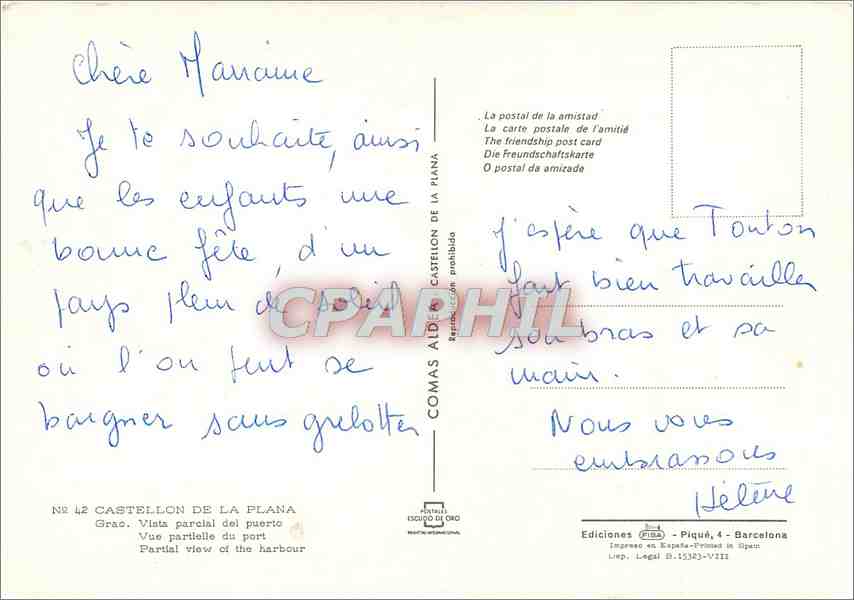 Chère Marraine
Je te souhaite, ainsi
que les enfants une
bonne fête, d'un
pays plein de soleil
où l'on peut se
baigner sans grelotter
Nº 42 CASTELLON DE LA PLANA
Grao. Vista parcial del puerto
Vue partielle du port
Partial view of the harbour
COMAS ALDEA CASTELLON DE LA PLANA
Reproducción prohibida
CPARPHIL
POSTALES
ESCUDO DE ORO
La postal de la amistad
La carte postale de l'amitié
The friendship post card
Die Freundschaftskarte
O postal da amizade
J'espère que Tonton
fait bien travailler
son bras et sa
main.
Nous vous
embrassons
Hélène
Ediciones FISA - Piqué, 4 - Barcelona
Impreso en España-Printed in Spain
Dep. Legal B.15323-VIII